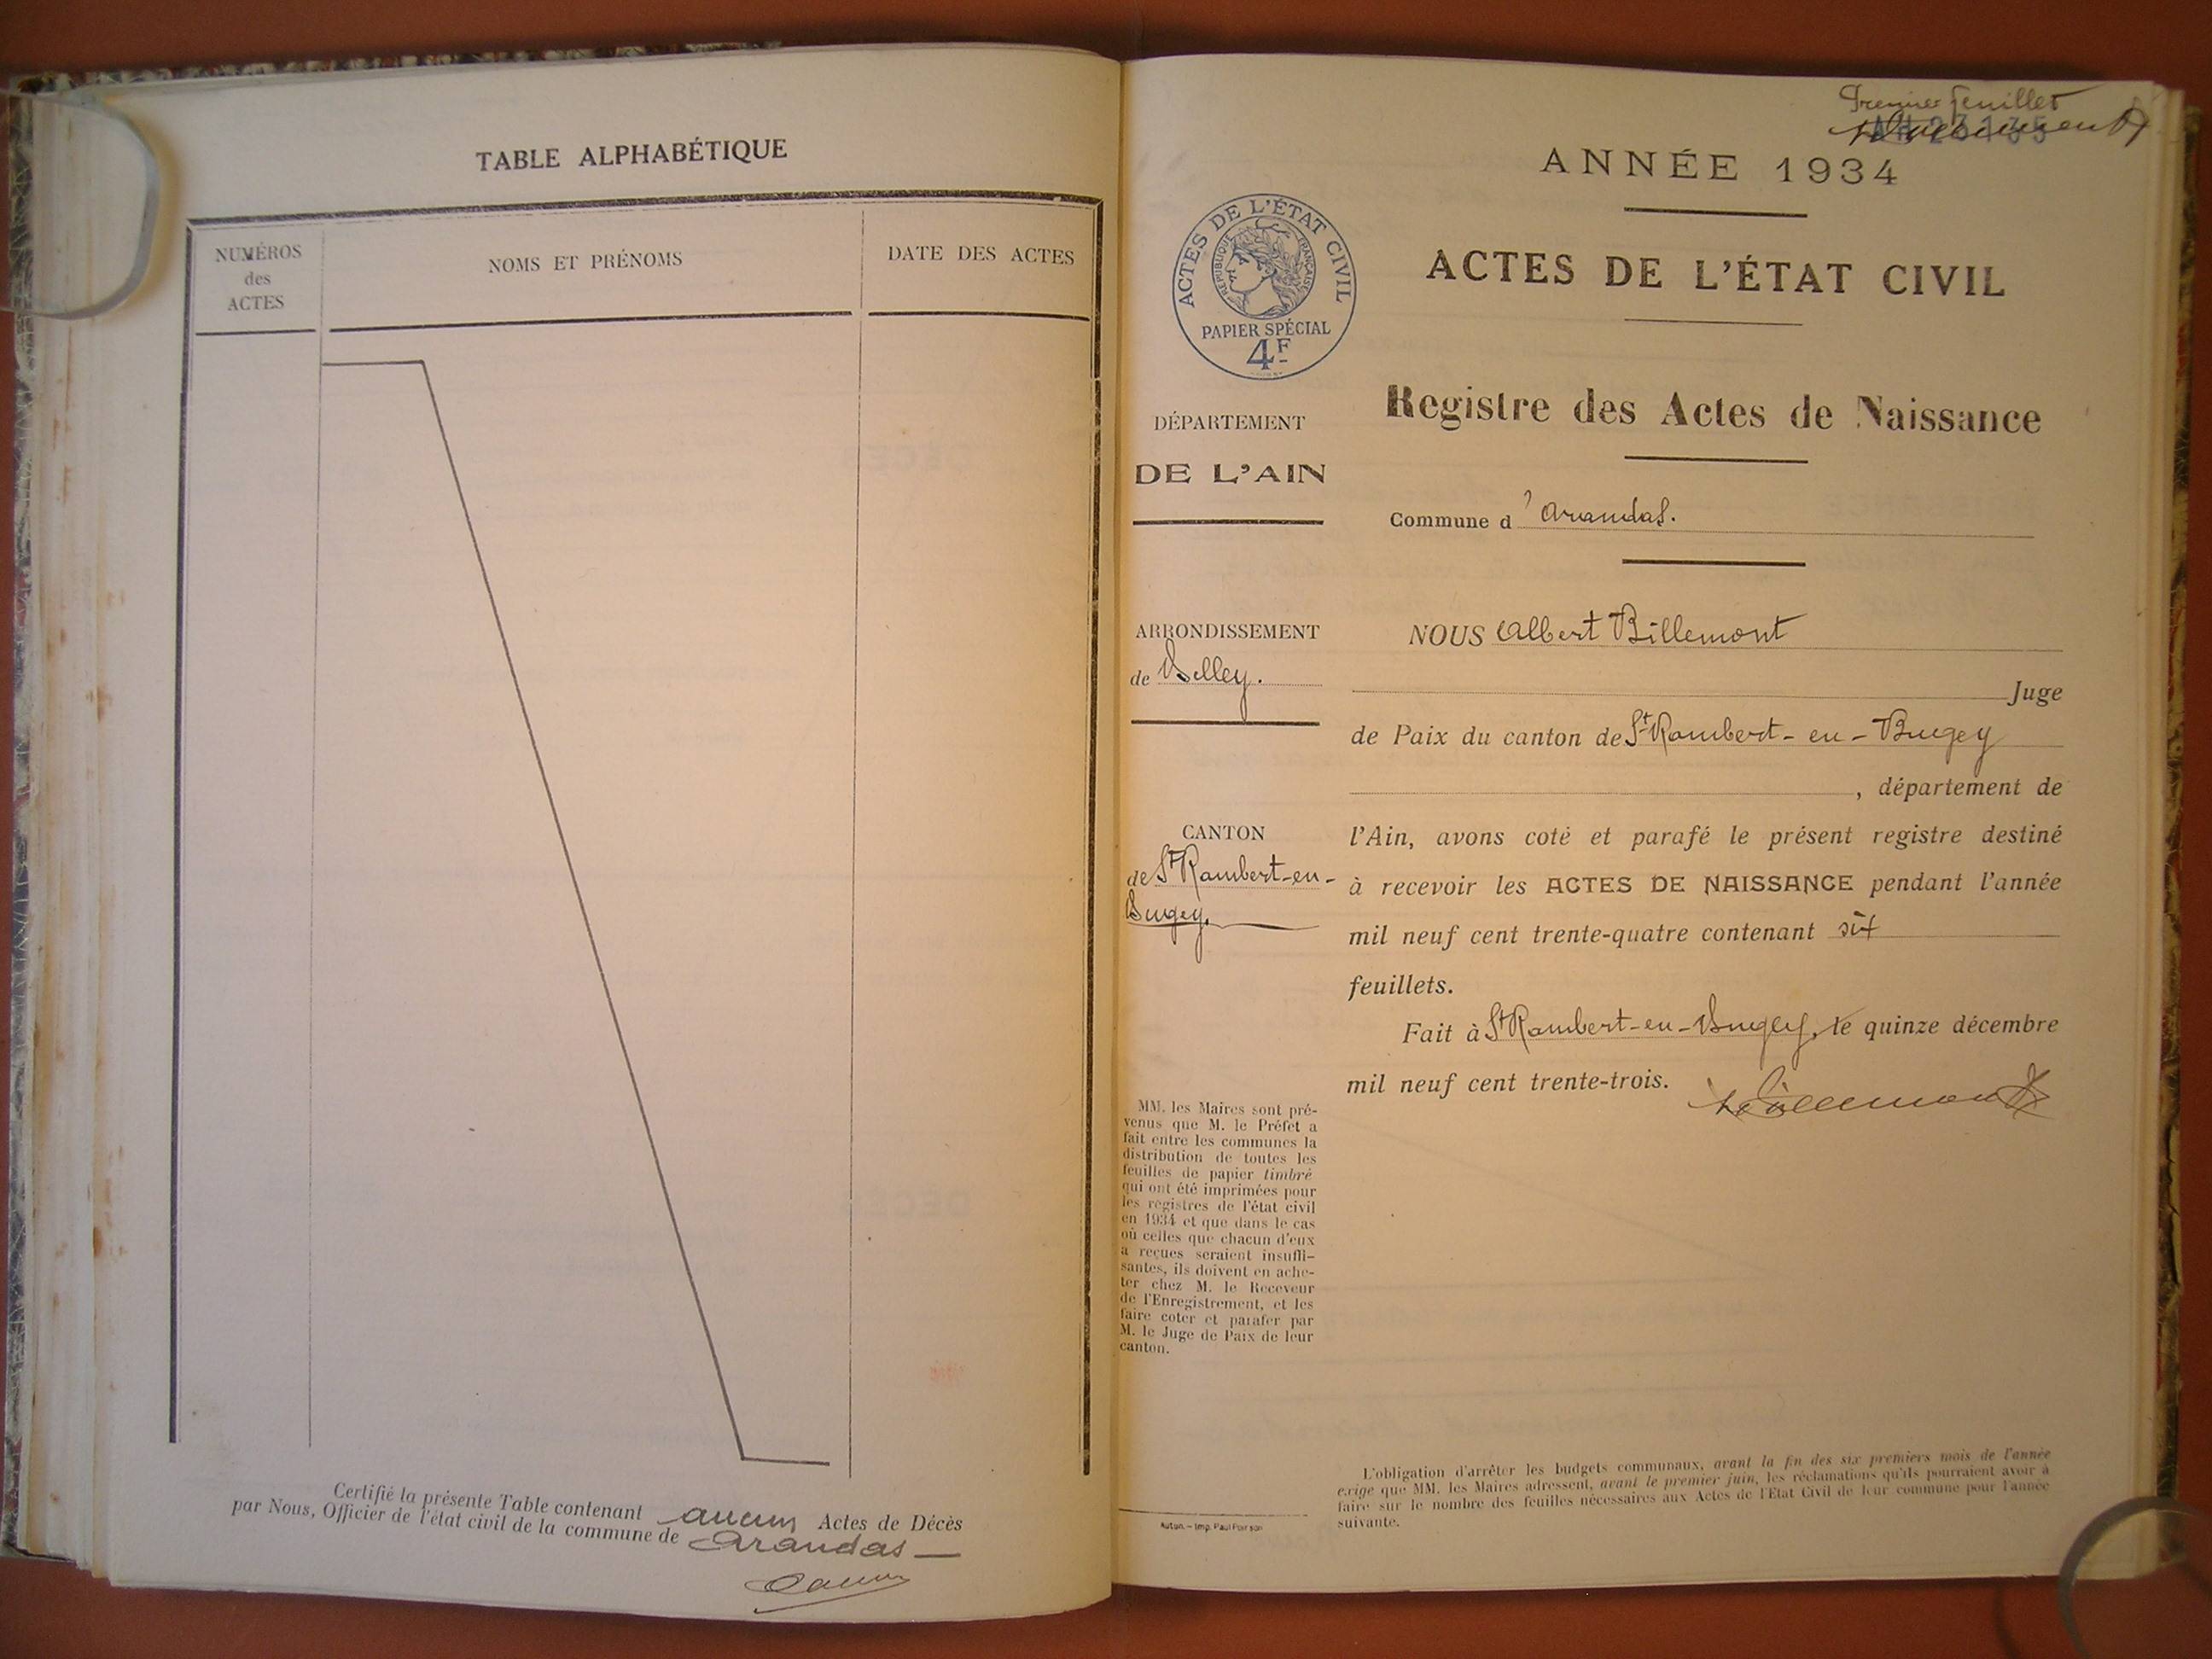 TABLE ALPHABÉTIQUE
NUMÉROS
des
ACTES
NOMS ET PRÉNOMS
DATE DES ACTES
Certifié la présente Table contenant aucun Actes de Décès
par Nous, Officier de l'état civil de la commune de Arandas
Premier feuillet
ANNÉE 1934
ACTES DE L'ÉTAT CIVIL
RÉPUBLIQUE FRANÇAISE
PAPIER SPÉCIAL
4F
ACTES DE L'ÉTAT CIVIL
Registre des Actes de Naissance
DÉPARTEMENT
DE L'AIN
Commune d'Arandas.
ARRONDISSEMENT
de Belley.
NOUS Albert Billemont
Juge
de Paix du canton de St Rambert-en-Bugey
, département de
CANTON
de St Rambert-en-
Bugey.
l'Ain, avons coté et parafé le présent registre destiné
à recevoir les ACTES DE NAISSANCE pendant l'année
mil neuf cent trente-quatre contenant six
feuillets.
Fait à St Rambert-en-Bugey, le quinze décembre
mil neuf cent trente-trois.
MM. les Maires sont pré-
venus que M. le Préfet a
fait entre les communes la
distribution de toutes les
feuilles de papier timbré
qui ont été imprimées pour
les registres de l'état civil
en 1934 et que dans le cas
où celles que chacun d'eux
a reçues seraient insuffi-
santes, ils doivent en ache-
ter chez M. le Receveur
de l'Enregistrement, et les
faire coter et parafer par
M. le Juge de Paix de leur
canton.
Autun. - Imp. Paul Poirson
L'obligation d'arrêter les budgets communaux, avant la fin des six premiers mois de l'année
exige que MM. les Maires adressent, avant le premier juin, les réclamations qu'ils pourraient avoir à
faire sur le nombre des feuilles nécessaires aux Actes de l'Etat Civil de leur commune pour l'année
suivante.